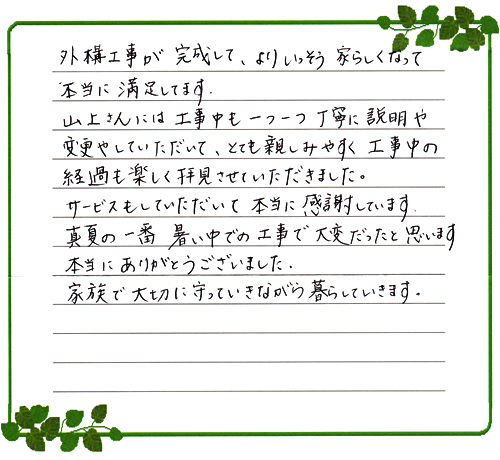 外構工事が完成して、よりいっそう家らしくなって
本当に満足してます.
山上さんには工事中も一つ一つ丁寧に説明や
変更やしていただいて、とても親しみやすく工事中の
経過も楽しく拝見させていただきました。
サービスもしていただいて本当に感謝しています.
真夏の一番暑い中での工事で大変だったと思います
本当にありがとうございました.
家族で大切に守っていきながら暮らしていきます。